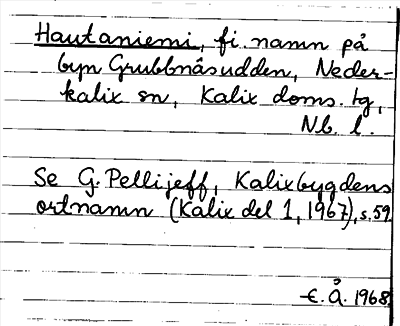 Hautaniemi, fi. namn på
byn Grubbnäsudden, Neder-
kalix sn, Kalix doms. tg,
Nb. l.
Se G. Pellijeff, Kalixbygdens
ortnamn (Kalix del 1, 1967), s. 59
E. Å. 1968